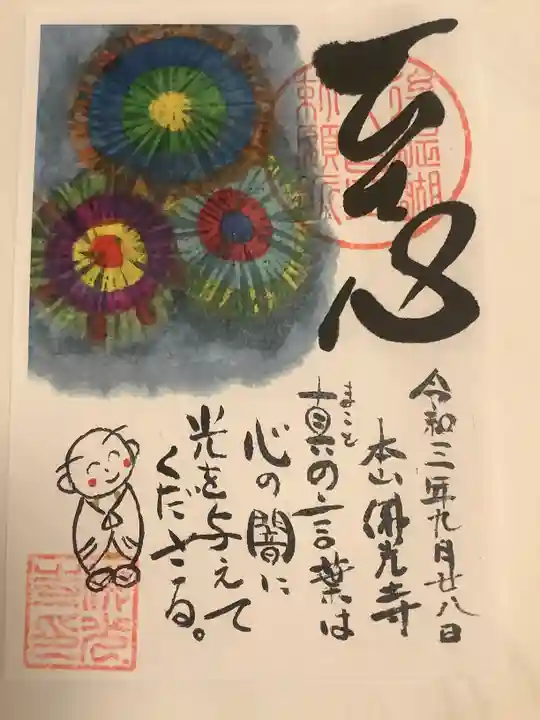 至心
令和三年九月廿八日
本山佛光寺
真の言葉は
まこと
心の闇に
光を与えて
くださる。